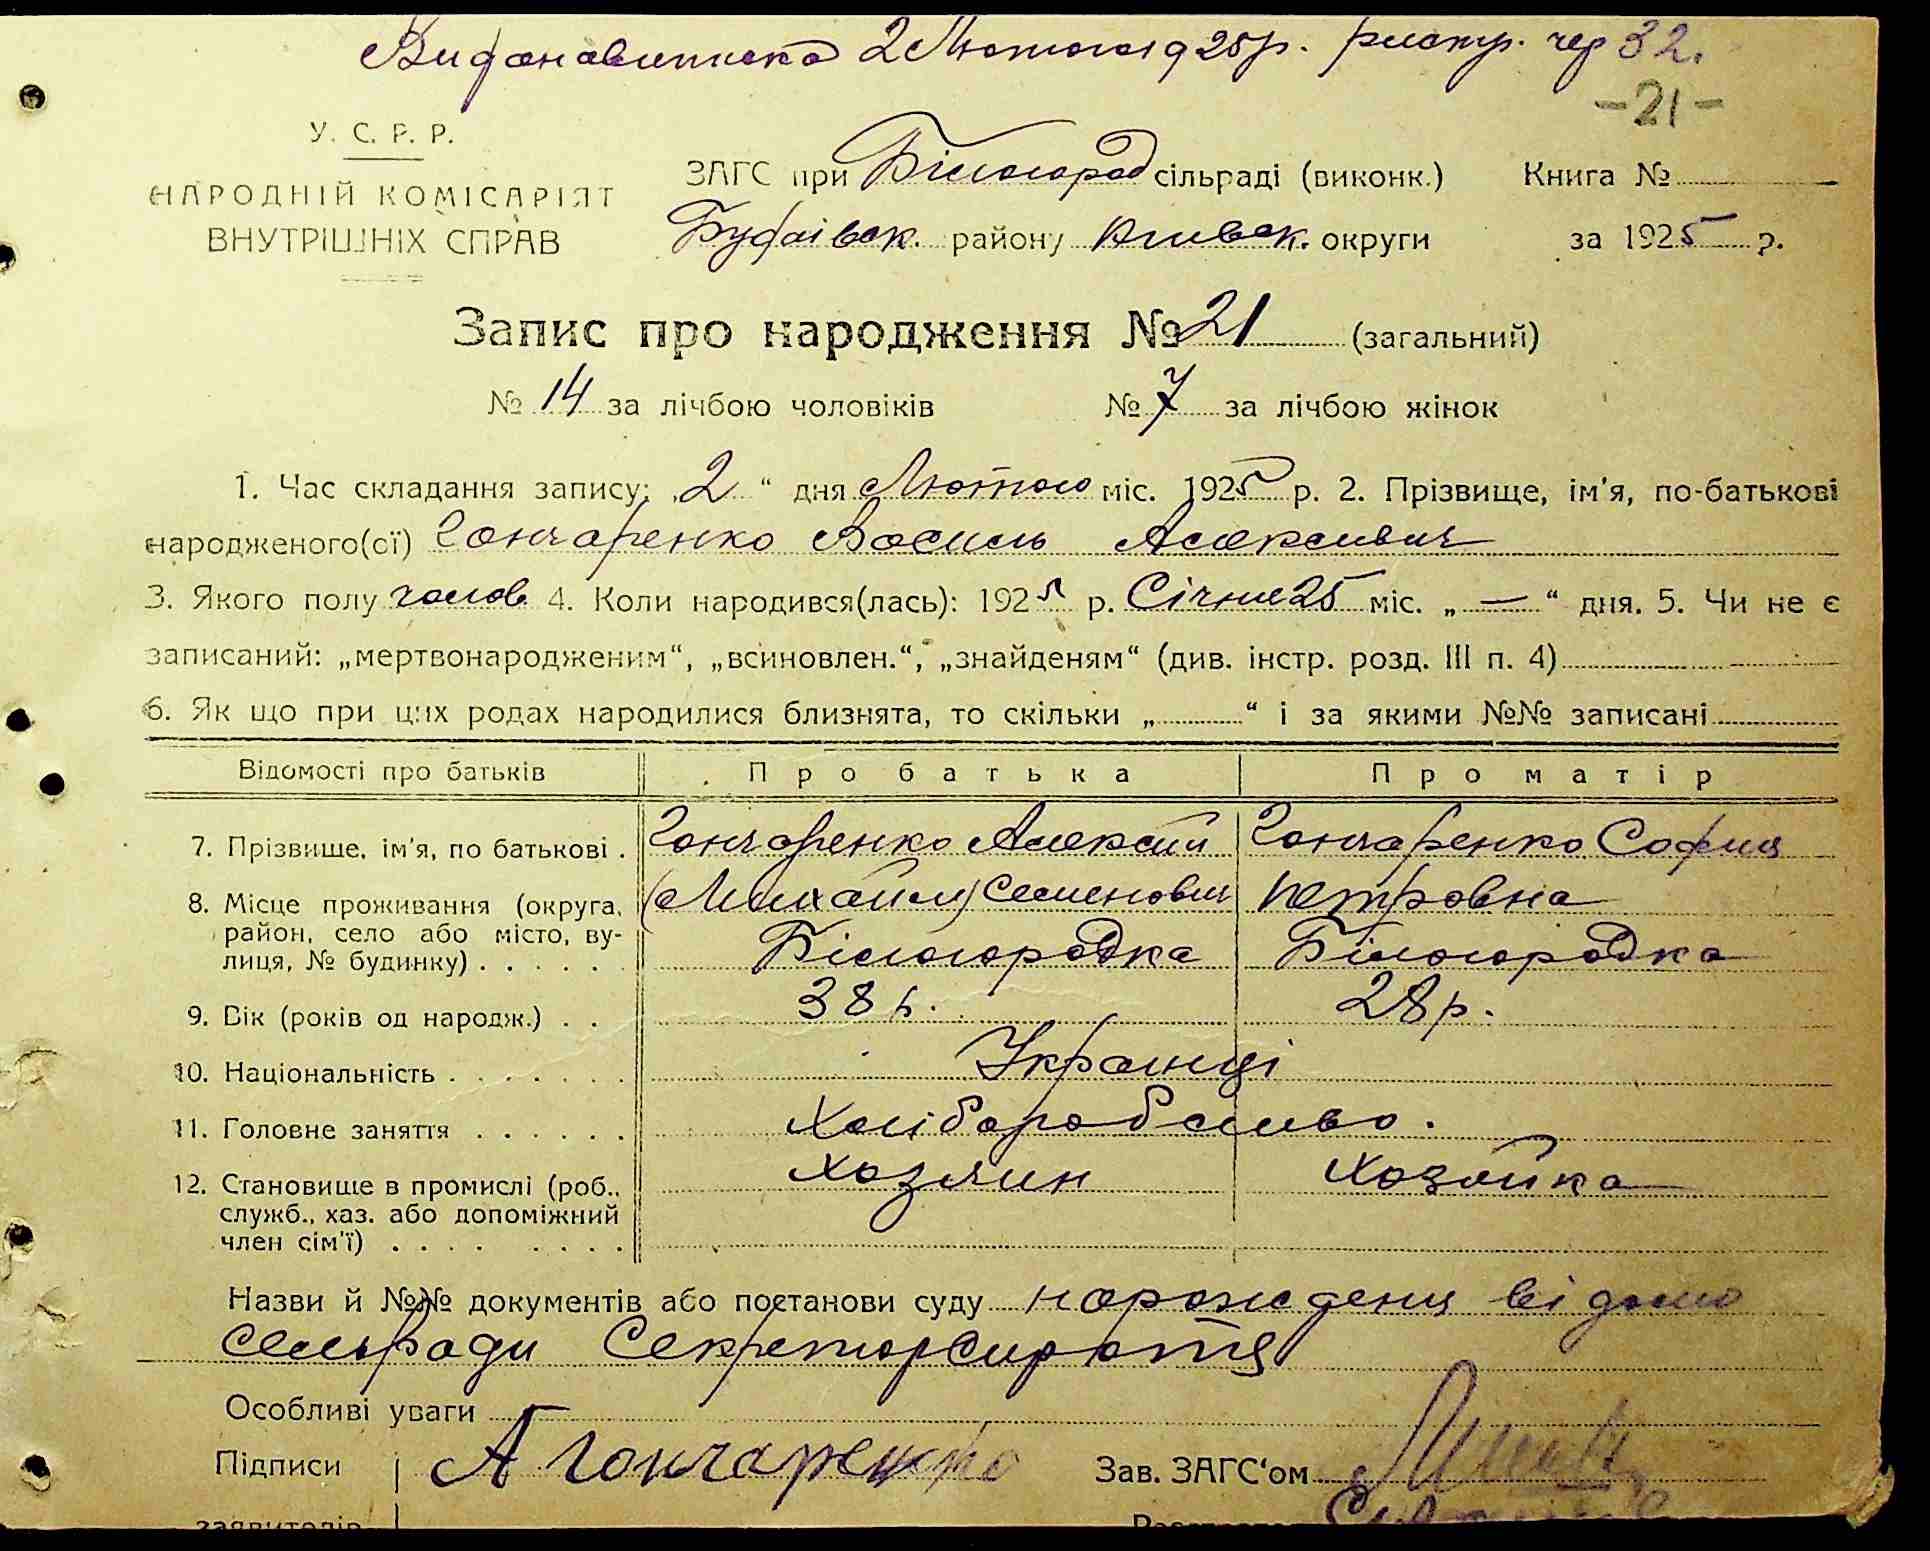 Видана виписка 2 Лютого 1925р. реєстр. чер 32.
-21-
У. С. Р. Р.
НАРОДНІЙ КОМІСАРІЯТ
ВНУТРІШНІХ СПРАВ
ЗАГС при Білогород сільраді (виконк.) Книга №
Будаівск. району Киівск. округи за 1925 р.
Запис про народження № 21 (загальний)
№ 14 за лічбою чоловіків № 7 за лічбою жінок
1. Час складання запису: „2“ дня Лютого міс. 1925 р. 2. Прізвище, ім'я, по-батькові
народженого(ої) Гончаренко Василь Алексієвич
3. Якого полу чолов. 4. Коли народився(лась): 1925 р. Січня 25 міс. „—“ дня. 5. Чи не є
записаний: „мертвонародженим“, „всиновлен.“, „знайденям“ (див. інстр. розд. III п. 4)
6. Як що при цих родах народилися близнята, то скільки „ “ і за якими №№ записані
Відомості про батьків Про батька Про матір
7. Прізвище, ім'я, по батькові . Гончаренко Алексій Гончаренко София
(Михайил) Семенович Петровна
8. Місце проживання (округа,
район, село або місто, ву-
лиця, № будинку) . . . . . . Білогородка Білогородка
9. Вік (років од народж.) . . 38 р. 28 р.
10. Національність . . . . . . . Украинці
11. Головне заняття . . . . . . Хліборобство.
12. Становище в промислі (роб., Хозяин Хозяйка
служб., хаз. або допоміжний
член сім'ї) . . . . . . . .
Назви й №№ документів або постанови суду нарождения відомо
сельради Секретарсиротя
Особливі уваги
Підписи А Гончаренко Зав. ЗАГС'ом
заявителів